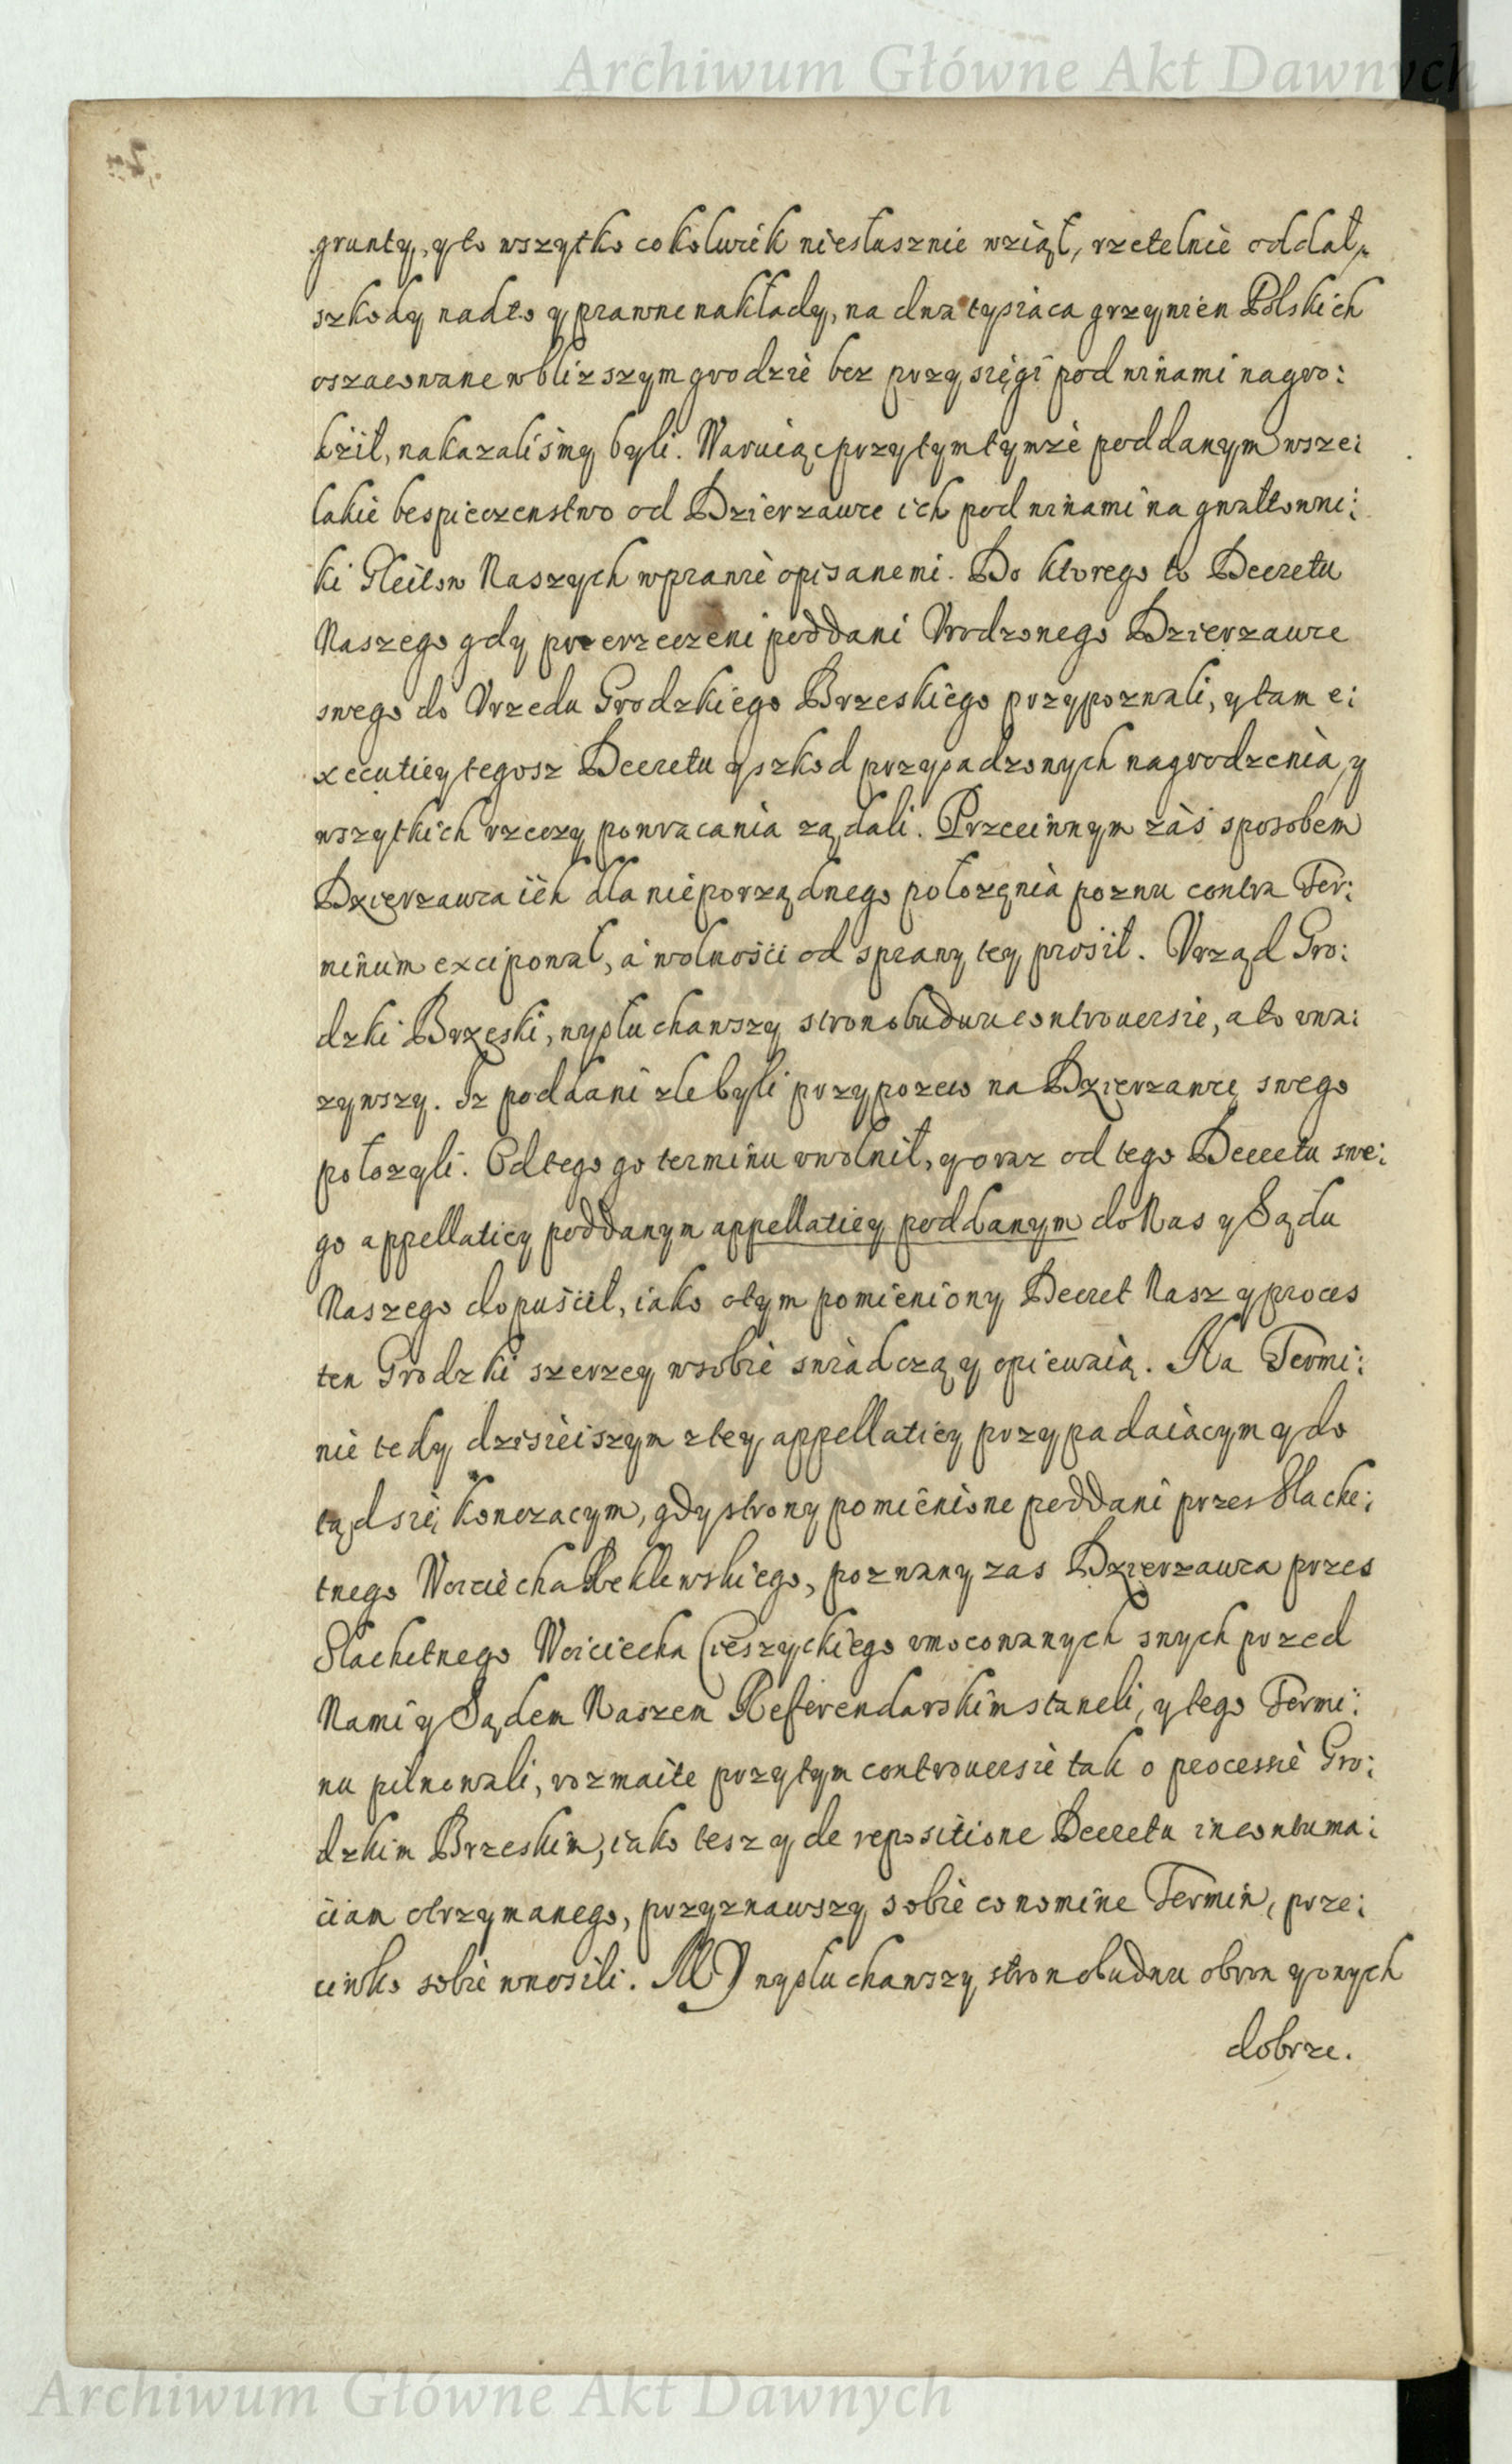 Archiwum Główne Akt Dawnych
grunty, y to wszytko cokolwiek niesłusznie wziął, rzetelnie oddał,
szkody nadto y prawne nakłady, na dwa tysiąca grzywien Polskich
oszacowane w blizszym grodzie bez przysięgi pod winami nagro:
dził, nakazalismy byli. Waruiąc przytym tymze poddanym wsze:
lakie bespieczenstwo od Dzierzawce ich pod winami na gwałtowni:
ki Gleitow Naszych w prawie opisanemi. Do ktorego to Decretu
Naszego gdy przerzeczeni poddani Vrodzonego Dzierzawce
swego do Vrzedu Grodzkiego Brzeskiego przypozwali, y tam e:
xecutiey tegosz Decretu y szkod przysadzonych nagrodzenia, y
wszytkich rzeczy powracania ządali. Przeciwnym zaś sposobem
Dzierzawca ich dla nieporządnego połozęnia pozwu contra Ter:
minum excipował, a wolności od sprawy tey prosił. Vrząd Gro:
dzki Brzeski, wysłuchawszy stron obudwu controuersie, a to vwa:
zywszy. Iz poddani zle byli przypozew na Dzierzawcę swego
połozyli. Od tego go terminu vwolnił, y oraz od tego Decretu swe:
go appellaticy poddanym appellatiey poddanym do Nas y Sądu
Naszego dopuścił, iako otym pomieniony Decret Nasz y proces
ten Grodzki szerzey w sobie swiadczą y opiewaią. Na Termi:
nie tedy dzisieiszym z tey appellatiey przypadaiącym y do
tąd się konczacym, gdy strony pomienione poddani przes Slache:
tnego Woiciecha Beklewskiego, pozwany zas Dzierzawca przes
Slachetnego Woiciecha Cieszyckiego vmocowanych swych przed
Nami y Sądem Naszem Referendarskim staneli, y tego Termi:
nu pilnowali, rozmaite przytym controuersie tak o processie Gro:
dzkim Brzeskim, iako tesz y de repositione Decretu in contuma:
ciam otrzymanego, przyznawszy sobie eo nomine Termin, prze:
ciwko sobie wnosili. MY wysłuchawszy stron obudwu obron y onych
dobrze.
Archiwum Główne Akt Dawnych